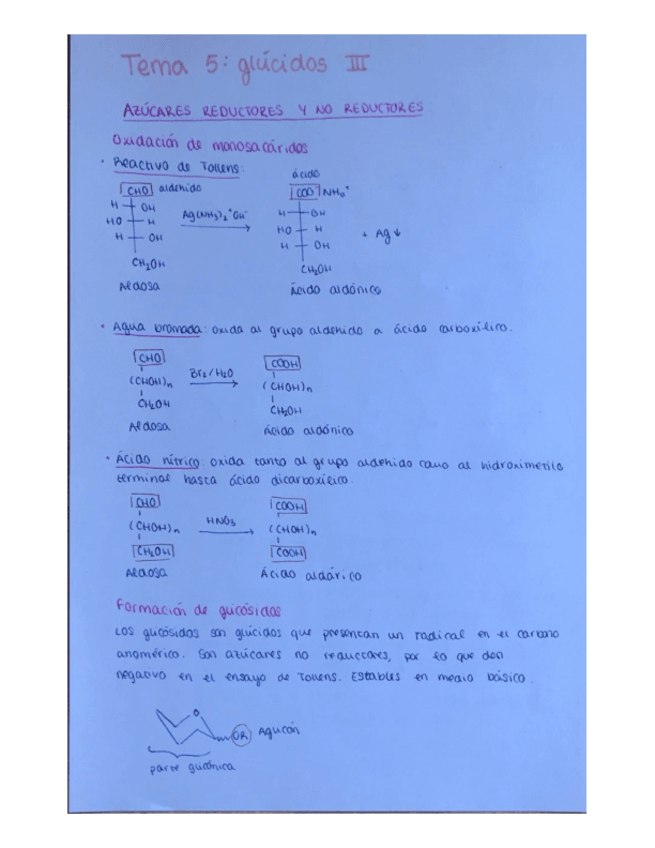 Tema 5: glúcidos III
AZÚCARES REDUCTORES Y NO REDUCTORES
Oxidación de monosacáridos
· Reactivo de Tollens:
ácido
CHO aldehído
COO⁻ NH₄⁺
H OH
H OH
Ag(NH₃)₂⁺OH⁻
HO H
HO H
+ Ag↓
H OH
H OH
CH₂OH
CH₂OH
Aldosa
Ácido aldónico
· Agua bromada: oxida al grupo aldehído a ácido carboxílico.
CHO
COOH
Br₂/H₂O
(CHOH)n
(CHOH)n
CH₂OH
CH₂OH
Aldosa
Ácido aldónico
· Ácido nítrico: oxida tanto al grupo aldehído como al hidroximetilo
terminal hasta ácido dicarboxílico.
CHO
COOH
HNO₃
(CHOH)n
(CHOH)n
CH₂OH
COOH
Aldosa
Ácido aldárico
Formación de glicósidos
Los glicósidos son glúcidos que presentan un radical en el carbono
anomérico. Son azúcares no reductores, por lo que dan
negativo en el ensayo de Tollens. Estables en medio básico.
O
OR Aglicón
parte glicónica